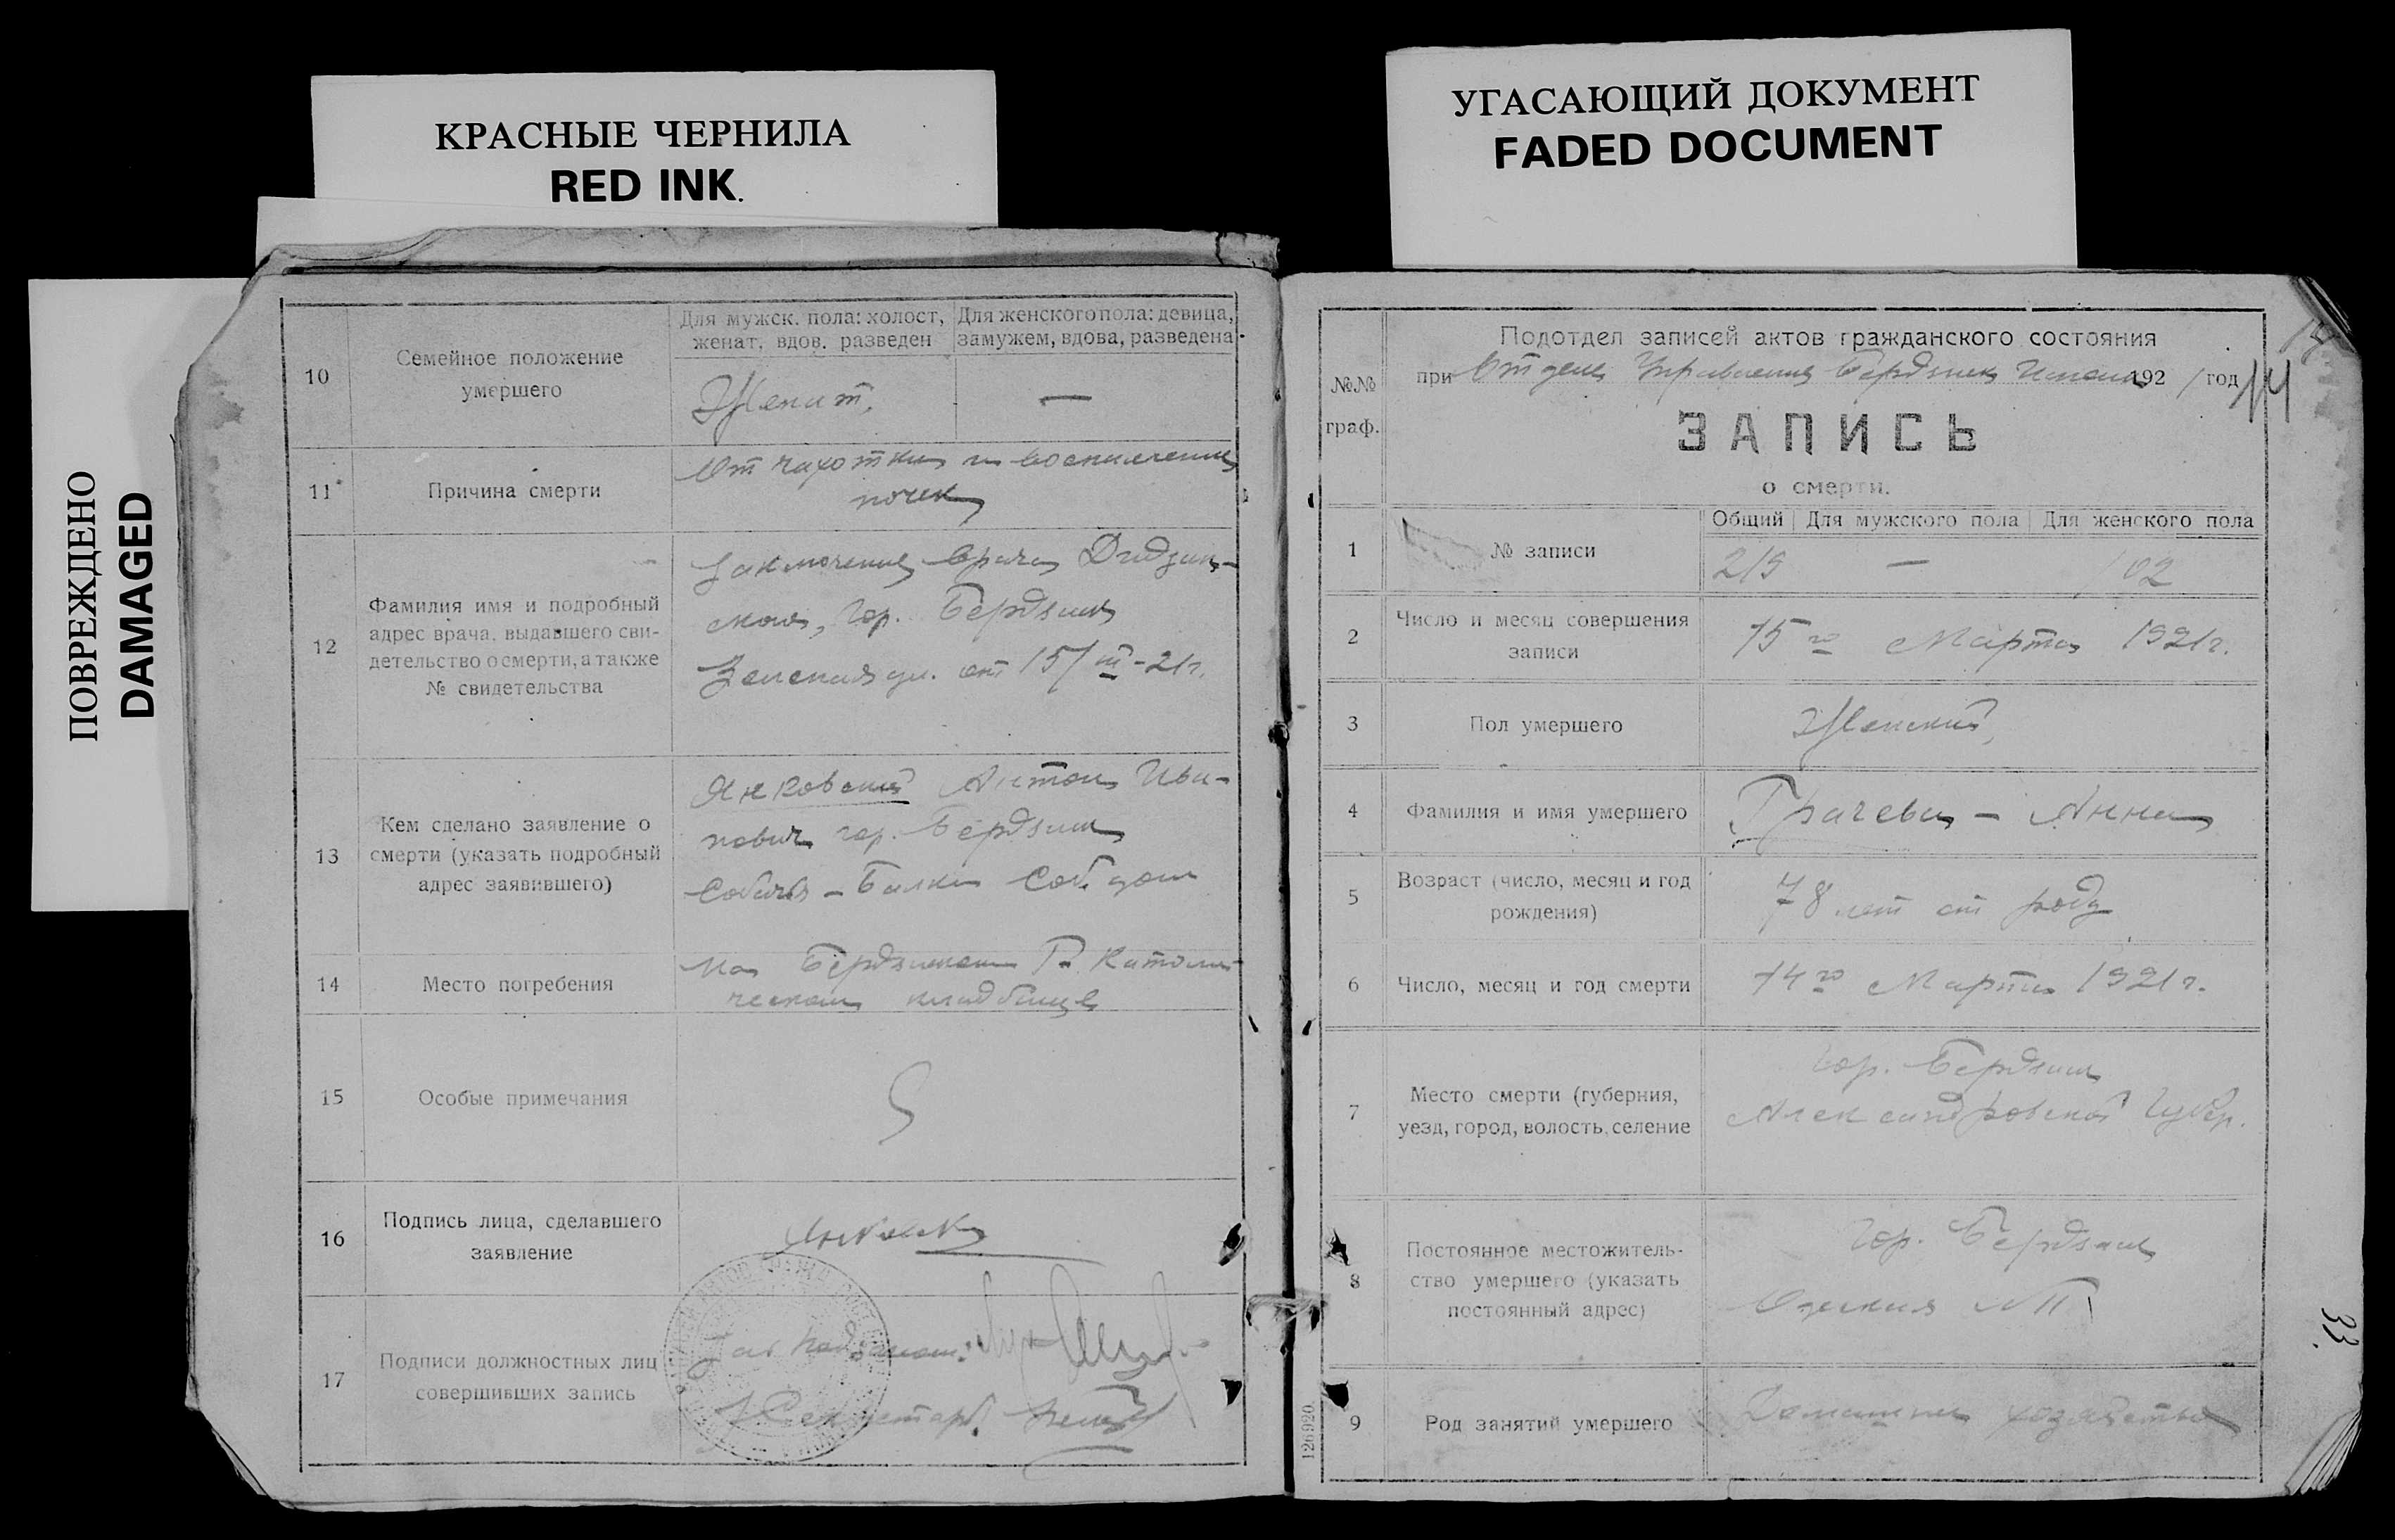 КРАСНЫЕ ЧЕРНИЛА
RED INK.
УГАСАЮЩИЙ ДОКУМЕНТ
FADED DOCUMENT
ПОВРЕЖДЕНО
DAMAGED
10
Семейное положение
умершего
Для мужск. пола: холост,
женат, вдов. разведен
Для женского пола: девица,
замужем, вдова, разведена
Женат.
—
11
Причина смерти
От чахотки и воспаления
почек
12
Фамилия имя и подробный
адрес врача, выдавшего сви-
детельство о смерти, а также
№ свидетельства
Заключение врача
гор. Бердянск
от 15/III-21г.
13
Кем сделано заявление о
смерти (указать подробный
адрес заявившего)
Янковский Антон Ива-
нович гор. Бердянск
Собачья - Балка Соб. дом
14
Место погребения
На Бердянском Р. Католи-
ческом кладбище
15
Особые примечания
16
Подпись лица, сделавшего
заявление
17
Подписи должностных лиц
совершивших запись
Секретарь
№№
граф.
Подотдел записей актов гражданского состояния
при Отделе Управления Бердянск 1921 год
14
ЗАПИСЬ
о смерти.
1
№ записи
Общий
Для мужского пола
Для женского пола
219
—
102
2
Число и месяц совершения
записи
15го Марта 1921г.
3
Пол умершего
Женский
4
Фамилия и имя умершего
Грачева - Анна
5
Возраст (число, месяц и год
рождения)
78 лет от роду
6
Число, месяц и год смерти
14го Марта 1921г.
7
Место смерти (губерния,
уезд, город, волость, селение
гор. Бердянск
Александровской Губер.
8
Постоянное местожитель-
ство умершего (указать
постоянный адрес)
Гор. Бердянск
9
Род занятий умершего
Домашнее хозяйство
126920
33.